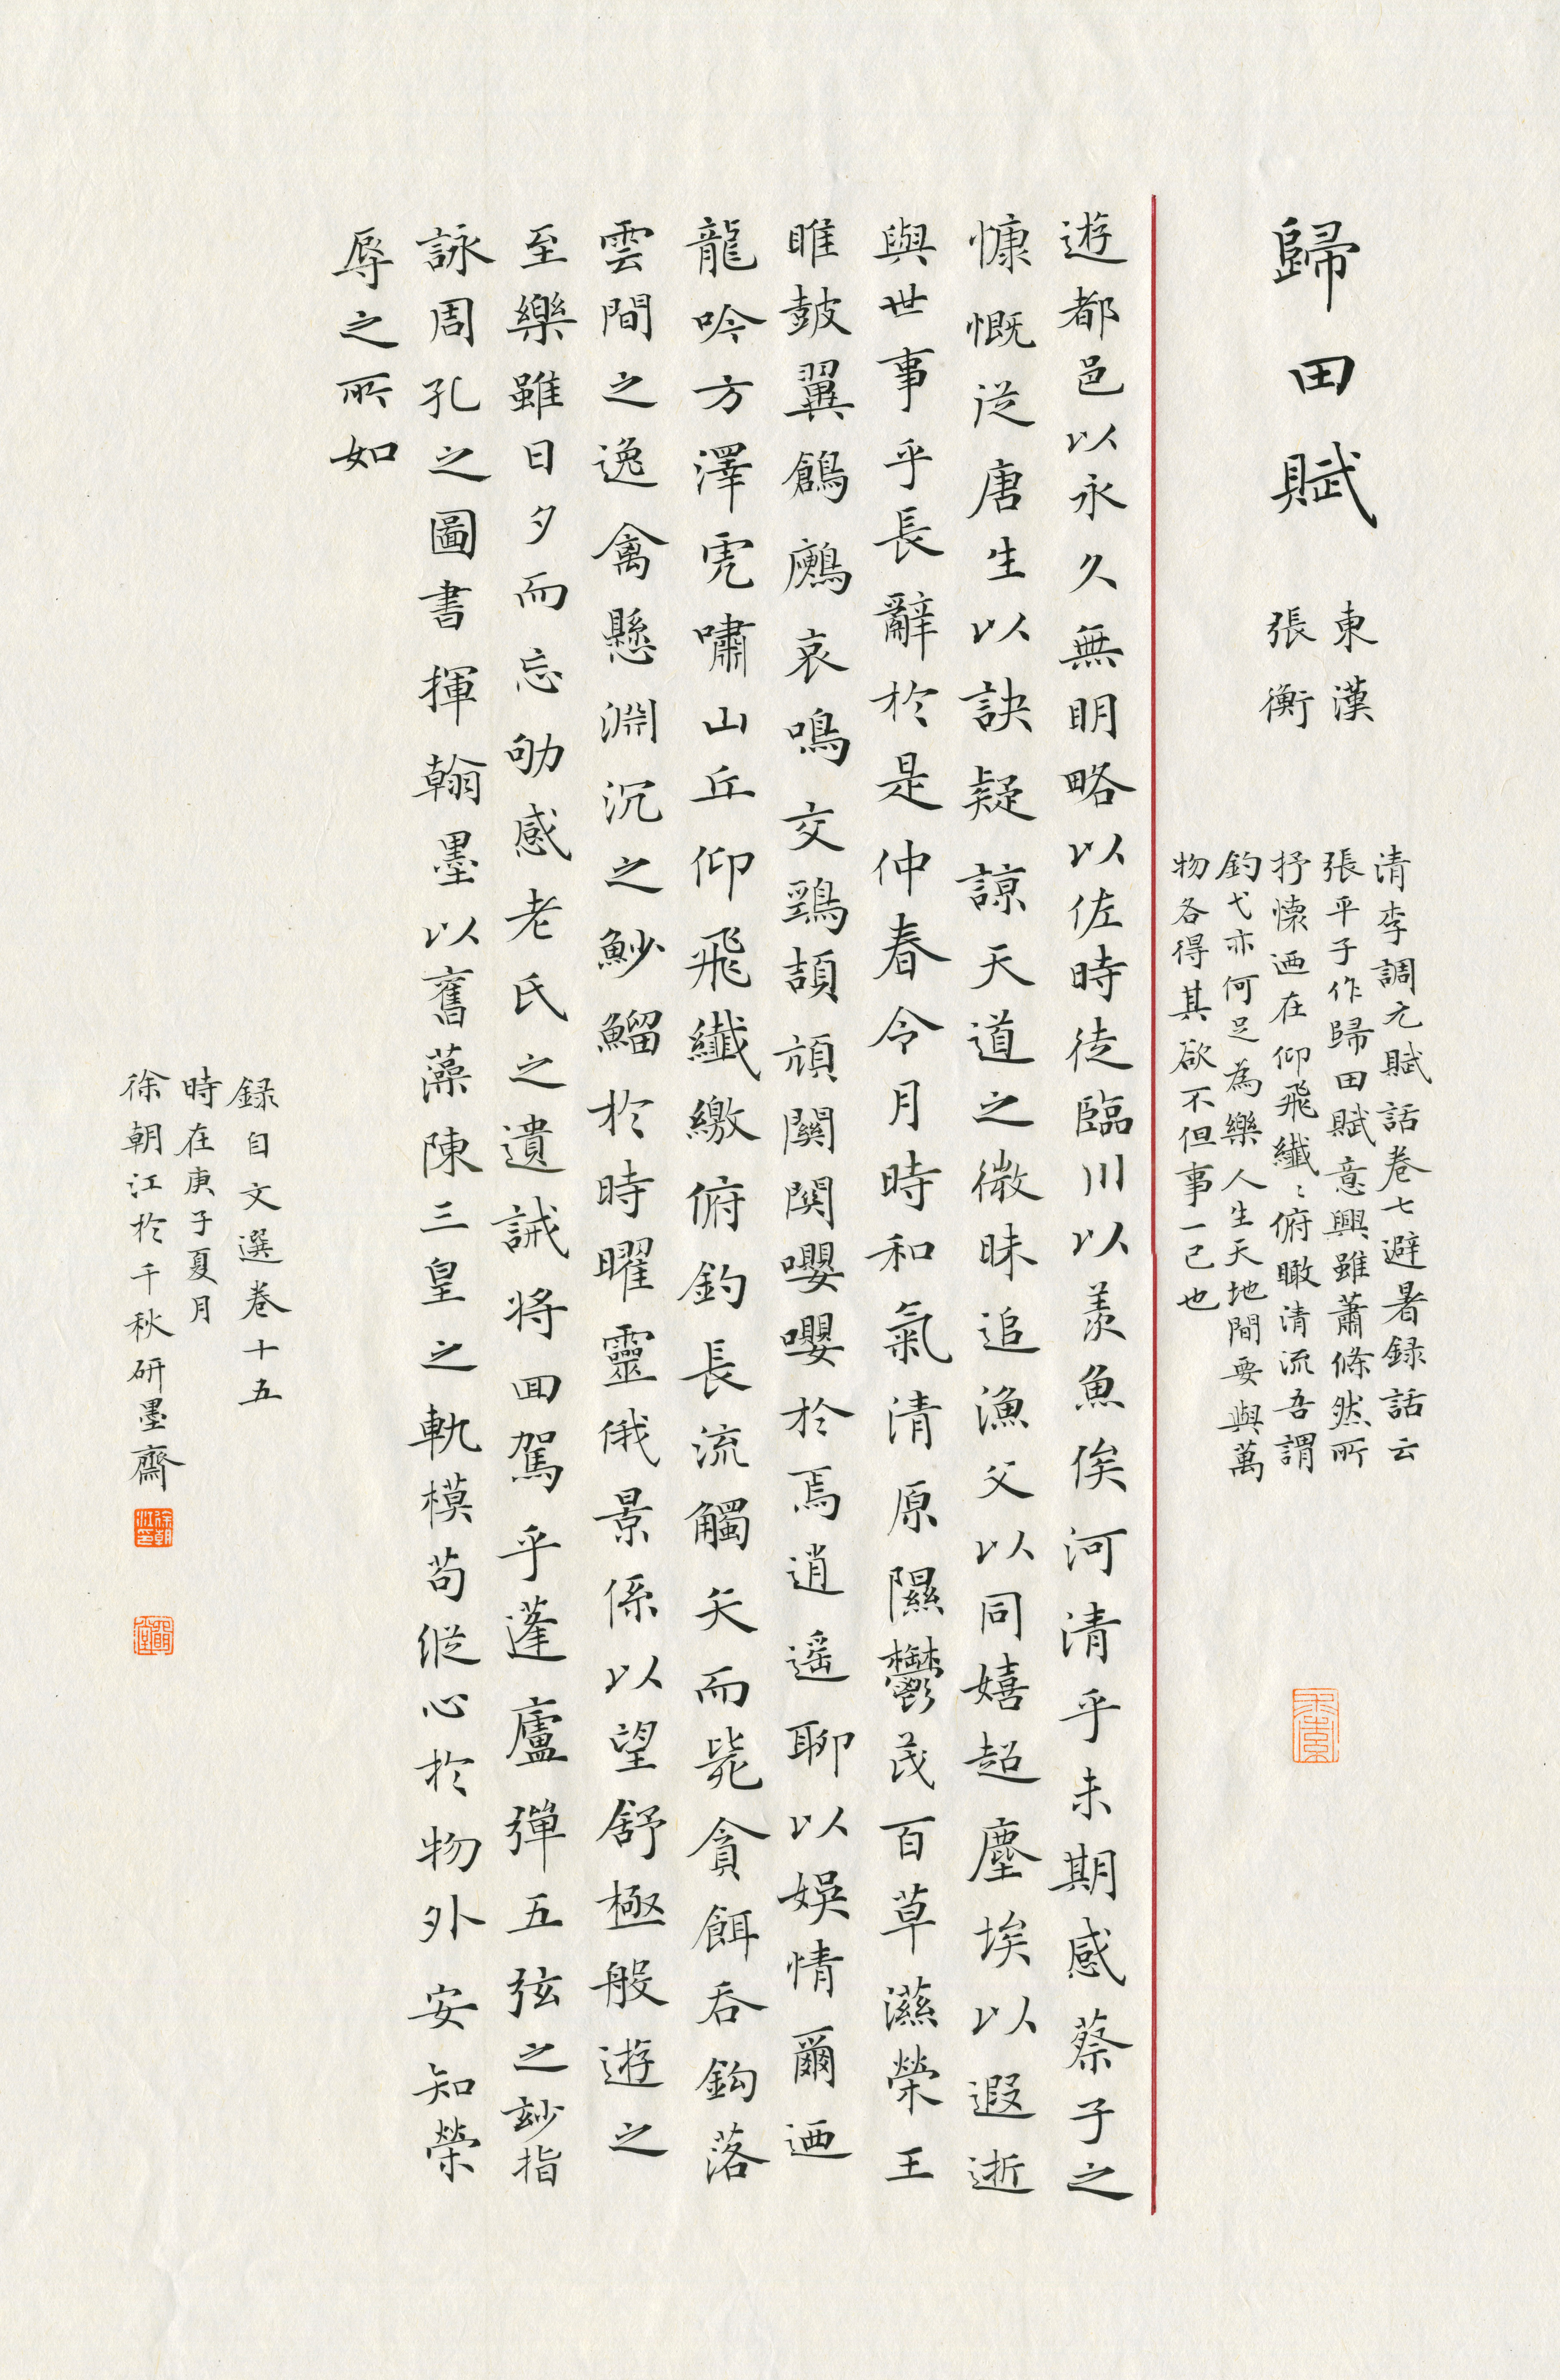 歸田賦
東漢
張衡
清李調元賦話卷七避暑録話云
張平子作歸田賦意興雖蕭條然所
抒懷迺在仰飛纖纖俯瞰清流吾謂
釣弋亦何足為樂人生天地間要與萬
物各得其欲不但事一己也
遊都邑以永久無明略以佐時徒臨川以羨魚俟河清乎未期感蔡子之
慷慨從唐生以訣疑諒天道之微昧追漁父以同嬉超塵埃以遐逝
與世事乎長辭於是仲春令月時和氣清原隰鬱茂百草濕榮王
雎鼓翼鶬鶊哀鳴交鵛頡頏關關嚶嚶於焉逍遙聊以娛情爾迺
龍吟方澤虎嘯山丘仰飛纖繳俯釣長流觸矢而斃貪餌吞鉤落
雲間之逸禽懸淵沉之魦鰡於時曜靈俄景係以望舒極般遊之
至樂雖日夕而忘劬感老氏之遺誡將回駕乎蓬廬彈五弦之玅指
詠周孔之圖書揮翰墨以奮藻陳三皇之軌模苟縱心於物外安知榮
辱之所如
録自文選卷十五
時在庚子夏月
徐朝江於千秋研墨齋
徐朝江印